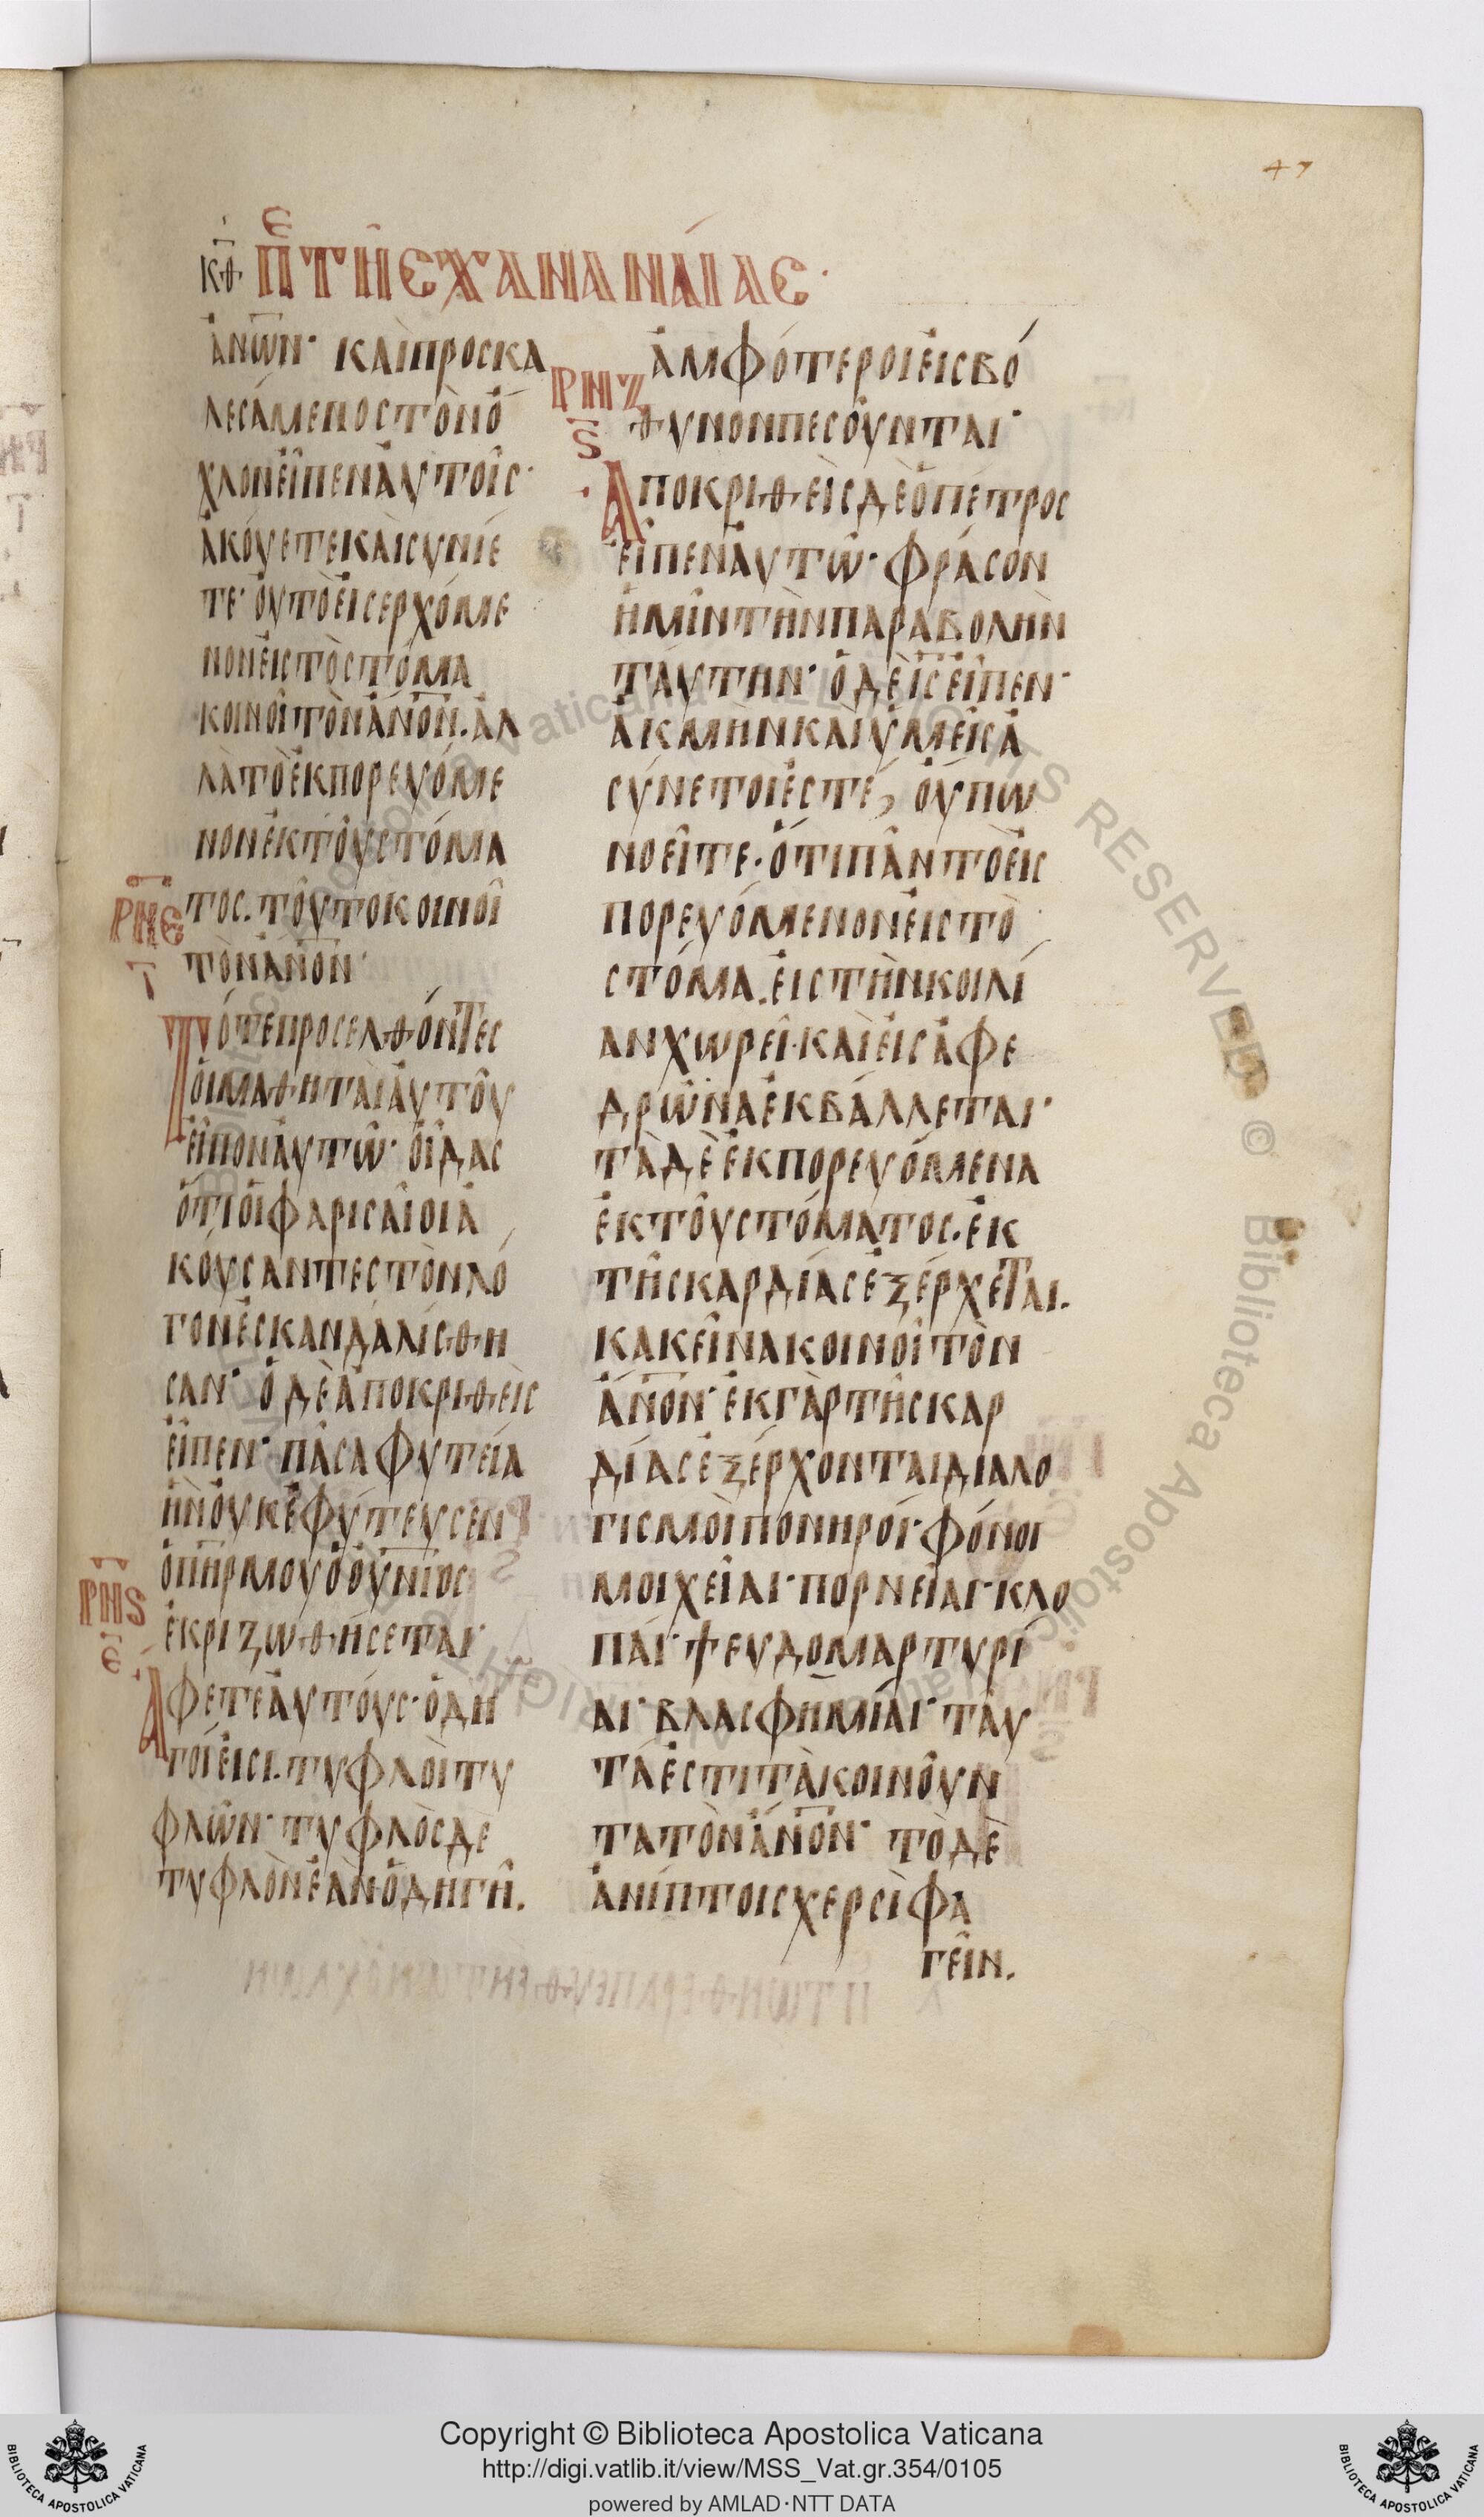 47
κθ Π ΤΗ̂Ϲ ΧΑΝΑΝΑΊΑϹ·
ἀνων· καὶ προσκα
λεσάμενος τὸν ὄ
χλον εἶπεν αὐτοῖς·
ἀκούετε καὶ συνίε
τε· οὐ τὸ εἰσερχόμε
νον εἰς τὸ στόμα
κοινοῖ τὸν ἄνον. ἀλ
λὰ τὸ ἐκπορευόμε
νον ἐκ τοῦ στόμα
τος. τοῦτο κοινοῖ
τὸν ἄνον·
ΡΝΕ
Τότε προσελθόντες
οἱ μαθηταὶ αὐτοῦ
εἶπον αὐτῷ· οἶδας
ὅτι οἱ φαρισαῖοι ἀ
κούσαντες τὸν λό
γον ἐσκανδαλίσθη
σαν· ὁ δὲ ἀποκριθεὶς
εἶπεν· πᾶσα φυτεία
ἣν οὐκ ἐφύτευσεν
ὁ πηρ μου ὁ οὐνιος
ἐκριζωθήσεται·
ΡΝϚ
Ε
Ἄφετε αὐτούς· ὁδη
γοί εἰσι. τυφλοὶ τυ
φλῶν· τυφλὸς δε
τυφλὸν ἐὰν ὁδηγῆ.
ἀμφότεροι εἰς βό
θυνον πεσοῦνται·
ΡΝΖ
Ϛ
Ἀποκριθεὶς δὲ ὁ πέτρος
εἶπεν αὐτῷ· φράσον
ἡμῖν τὴν παραβολὴν
ταύτην· ὁ δὲ ις εἶπεν·
ἀκμὴν καὶ ὑμεῖς ἀ
σύνετοί ἐστέ, οὔπω
νοεῖτε. ὅτι πᾶν τὸ εἰς
πορευόμενον εἰς τὸ
στόμα. εἰς τὴν κοιλί
αν χωρεῖ. καὶ εἰς ἀφε
δρῶνα ἐκβάλλεται·
τὰ δὲ ἐκπορευόμενα
ἐκ τοῦ στόματος. ἐκ
τῆς καρδίας ἐξέρχεται.
κακεῖνα κοινοῖ τὸν
ἄνον· ἐκ γὰρ τῆς καρ
δίας ἐξέρχονται διαλο
γισμοὶ πονηροί· φόνοι
μοιχεῖαι· πορνεῖαι· κλο
παί· ψευδομαρτυρί
αι· βλασφημίαι· ταῦ
τά ἐστι τὰ κοινοῦν
τα τὸν ἄνον· τὸ δὲ
ἀνίπτοις χερσὶ φα
γεῖν.
Copyright © Biblioteca Apostolica Vaticana
http://digi.vatlib.it/view/MSS_Vat.gr.354/0105
powered by AMLAD·NTT DATA
BIBLIOTECA APOSTOLICA VATICANA
BIBLIOTECA APOSTOLICA VATICANA